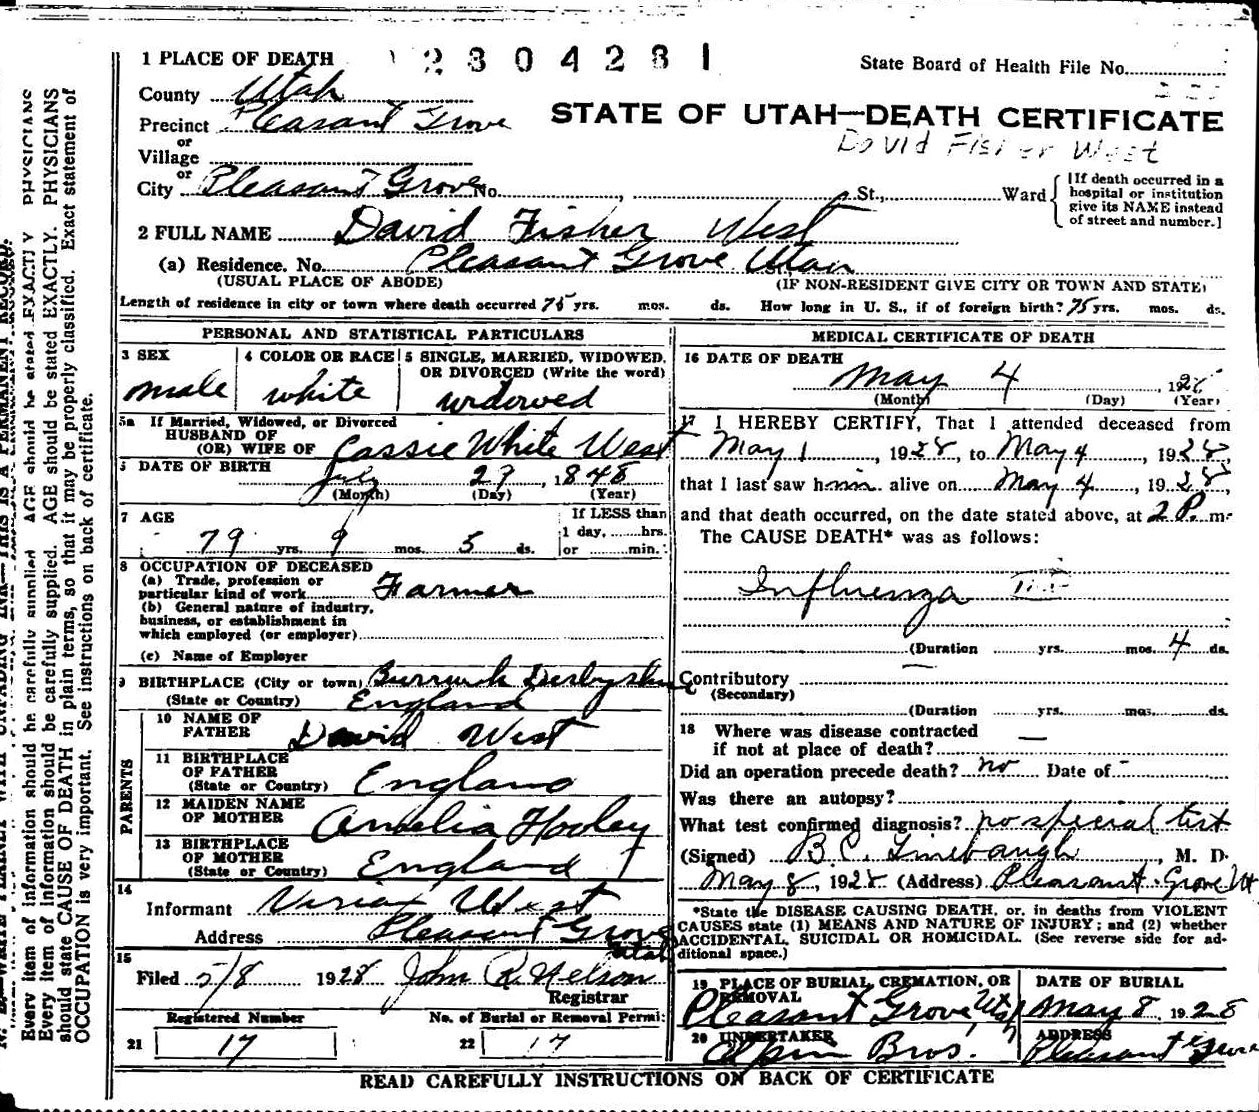 1 PLACE OF DEATH
2304281
State Board of Health File No.
County Utah
STATE OF UTAH—DEATH CERTIFICATE
Precinct Pleasant Grove
David Fisher West
or
Village
or
City Pleasant Grove No. , St., Ward
[If death occurred in a
hospital or institution
give its NAME instead
of street and number.]
2 FULL NAME David Fisher West
(a) Residence. No. Pleasant Grove Utah
(USUAL PLACE OF ABODE) (IF NON-RESIDENT GIVE CITY OR TOWN AND STATE)
Length of residence in city or town where death occurred 75 yrs. mos. ds. How long in U. S., if of foreign birth? 75 yrs. mos. ds.
PERSONAL AND STATISTICAL PARTICULARS
3 SEX
male
4 COLOR OR RACE
white
5 SINGLE, MARRIED, WIDOWED,
OR DIVORCED (Write the word)
widowed
5a If Married, Widowed, or Divorced
HUSBAND OF
(OR) WIFE OF Cassie White West
DATE OF BIRTH July 29, 1848
(Month) (Day) (Year)
7 AGE
79 yrs. 9 mos. 5 ds.
If LESS than
1 day, hrs.
or min.
8 OCCUPATION OF DECEASED
(a) Trade, profession or
particular kind of work Farmer
(b) General nature of industry,
business, or establishment in
which employed (or employer)
(c) Name of Employer
9 BIRTHPLACE (City or town) Derbyshire
(State or Country) England
PARENTS
10 NAME OF
FATHER David West
11 BIRTHPLACE
OF FATHER
(State or Country) England
12 MAIDEN NAME
OF MOTHER Amelia Hooley
13 BIRTHPLACE
OF MOTHER
(State or Country) England
14
Informant West
Address Pleasant Grove
Utah
15
Filed 5/8 1928 John R. Nelson
Registrar
Registered Number No. of Burial or Removal Permit
21 17 22 17
MEDICAL CERTIFICATE OF DEATH
16 DATE OF DEATH
May 4, 192
(Month) (Day) (Year)
17 I HEREBY CERTIFY, That I attended deceased from
May 1, 1928, to May 4, 1928,
that I last saw him alive on May 4, 1928,
and that death occurred, on the date stated above, at 2 P. m.
The CAUSE DEATH* was as follows:
Influenza
(Duration yrs. mos. 4 ds.
Contributory
(Secondary)
(Duration yrs. mos. ds.
18 Where was disease contracted
if not at place of death? —
Did an operation precede death? no Date of -
Was there an autopsy?
What test confirmed diagnosis? no special test
(Signed) B. C. Linebaugh, M. D.
May 8, 1928 (Address) Pleasant Grove Ut
*State the DISEASE CAUSING DEATH, or, in deaths from VIOLENT
CAUSES state (1) MEANS AND NATURE OF INJURY; and (2) whether
ACCIDENTAL, SUICIDAL OR HOMICIDAL. (See reverse side for ad-
ditional space.)
19 PLACE OF BURIAL, CREMATION, OR
REMOVAL
Pleasant Grove, Utah
DATE OF BURIAL
May 8 1928
20 UNDERTAKER
Bros.
ADDRESS
Pleasant Grove
READ CAREFULLY INSTRUCTIONS ON BACK OF CERTIFICATE
Every item of information should be carefully supplied. AGE should be stated EXACTLY. PHYSICIANS
should state CAUSE OF DEATH in plain terms, so that it may be properly classified. Exact statement of
OCCUPATION is very important. See instructions on back of certificate.